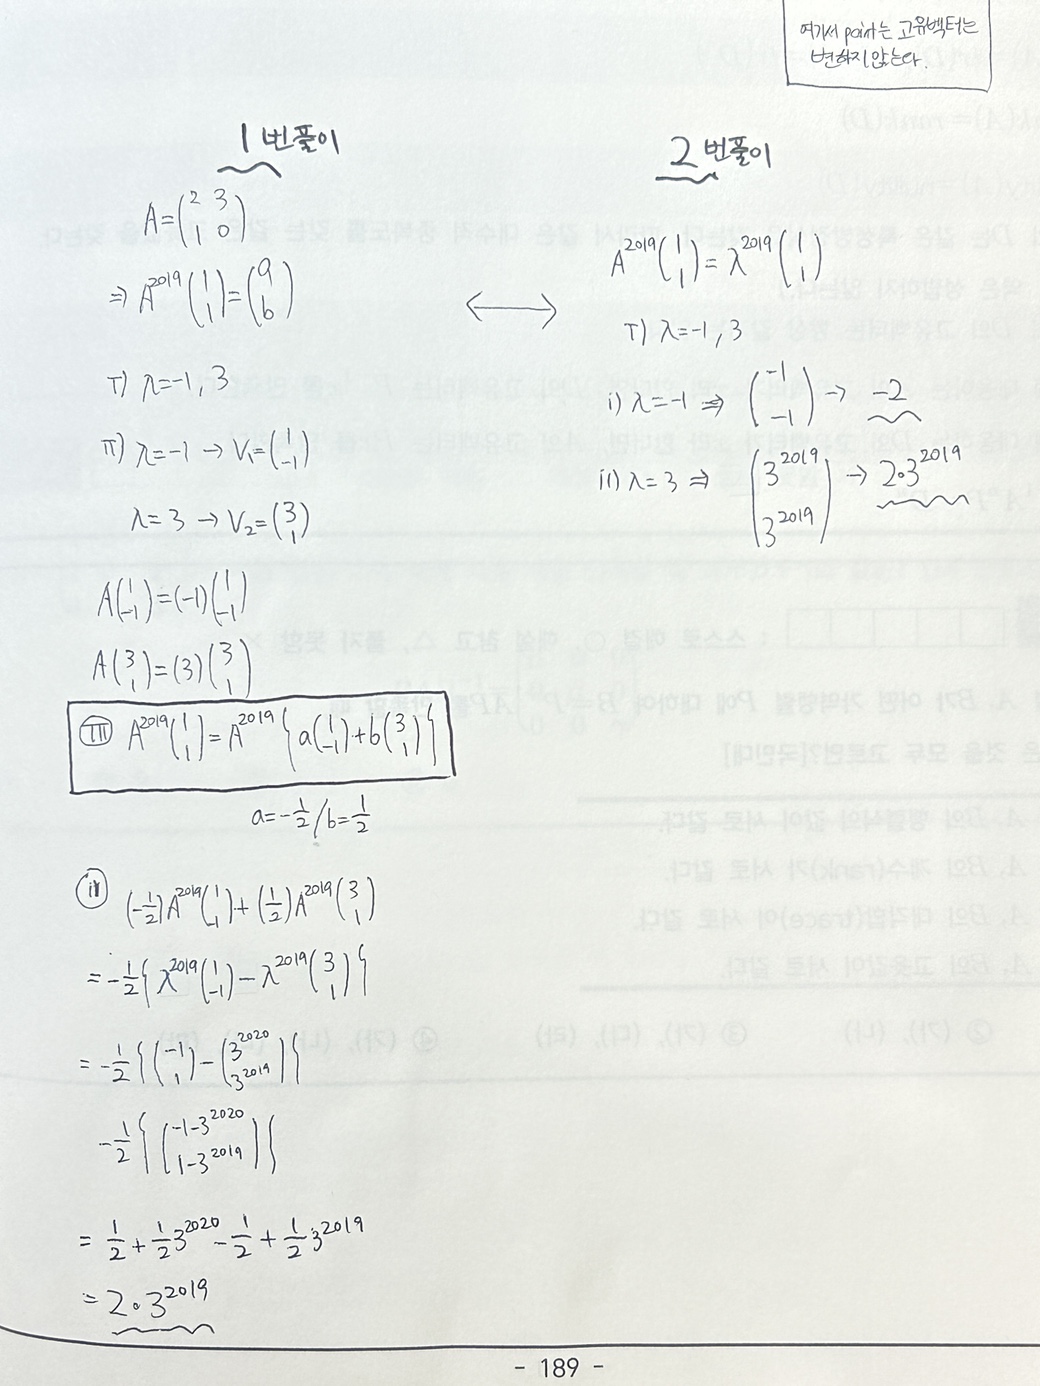 여기서 point는 고유벡터는
변하지 않는다.
1번풀이
A=(2 3
1 0)
⇒ A^2019(1
1)=(a
b)
T) λ=-1, 3
II) λ=-1 → V₁=(1
-1)
λ=3 → V₂=(3
1)
A(1
-1)=(-1)(1
-1)
A(3
1)=(3)(3
1)
III A^2019(1
1)=A^2019{a(1
-1)+b(3
1)}
a=-1/2 / b=1/2
iv (-1/2)A^2019(1
-1)+(1/2)A^2019(3
1)
=-1/2{λ^2019(1
-1)-λ^2019(3
1)}
=-1/2{(-1
1)-(3^2020
3^2019)}
-1/2{(-1-3^2020
1-3^2019)}
= 1/2+1/2 3^2020-1/2+1/2 3^2019
= 2·3^2019
↔
2번풀이
A^2019(1
1)=λ^2019(1
1)
T) λ=-1, 3
i) λ=-1 ⇒ (-1
-1) → -2
ii) λ=3 ⇒ (3^2019
3^2019) → 2·3^2019
- 189 -